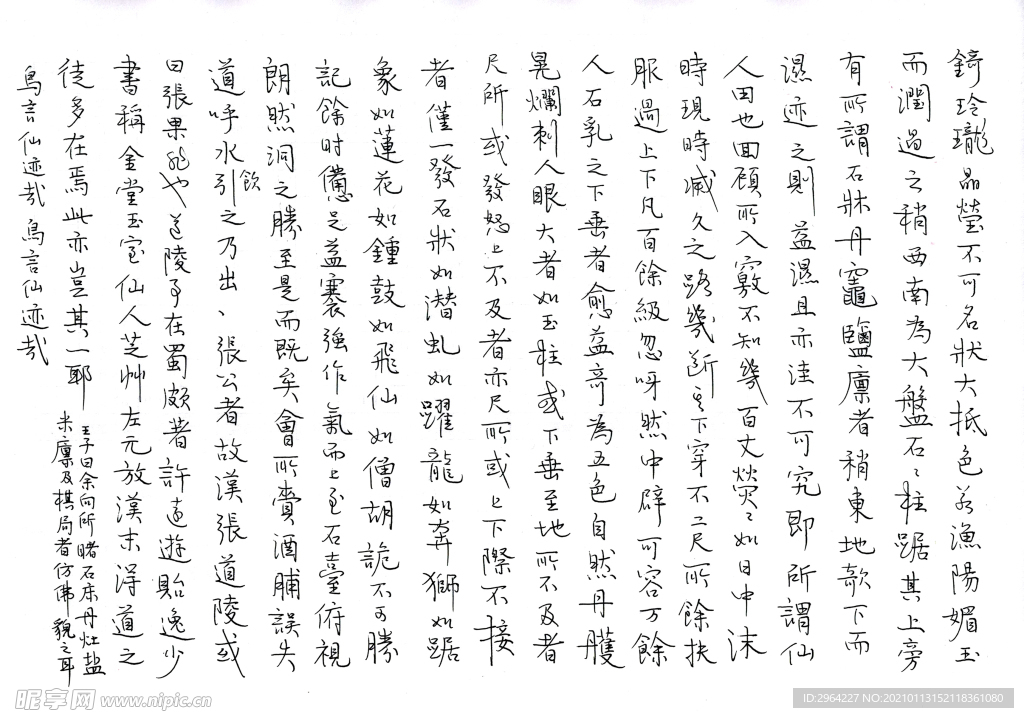 錡玲瓏晶瑩不可名狀大抵色若漁陽媚玉
而潤過之稍西南為大盤石石柱踞其上旁
有所謂石牀丹竈鹽廩者稍東地欹下而
濕迹之則益濕且亦洼不可究即所謂仙
人田也回顧所入竅不知幾百丈熒熒如日中沫
時現時滅久之路幾斷其下穿不二尺所餘扶
服過上下凡百餘級忽呀然中辟可容万餘
人石乳之下垂者愈益奇為五色自然丹雘
晃爛刺人眼大者如玉柱或下垂至地所不及者
尺所或發怒上不及者亦尺所或上下際不接
者僅一發石狀如潛虬如躍龍如奔獅如踞
象如蓮花如鍾鼓如飛仙如僧胡詭不可勝
記餘时憊足益蹇强作氣而上至石臺俯視
朗然洞之勝至是而既矣會所賫酒脯誤失
道呼水引飲之乃出、張公者故漢張道陵或
曰張果非也道陵事在蜀頗著許遠遊貽逸少
書稱金堂玉室仙人芝艸左元放漢末得道之
徒多在焉此亦豈其一耶
王子曰余向所睹石床丹灶盐
米廩及棋局者仿佛貌之耳
烏言仙迹哉烏言仙迹哉
昵享网 www.nipic.cn
ID:2964227 NO:20210113152118361080